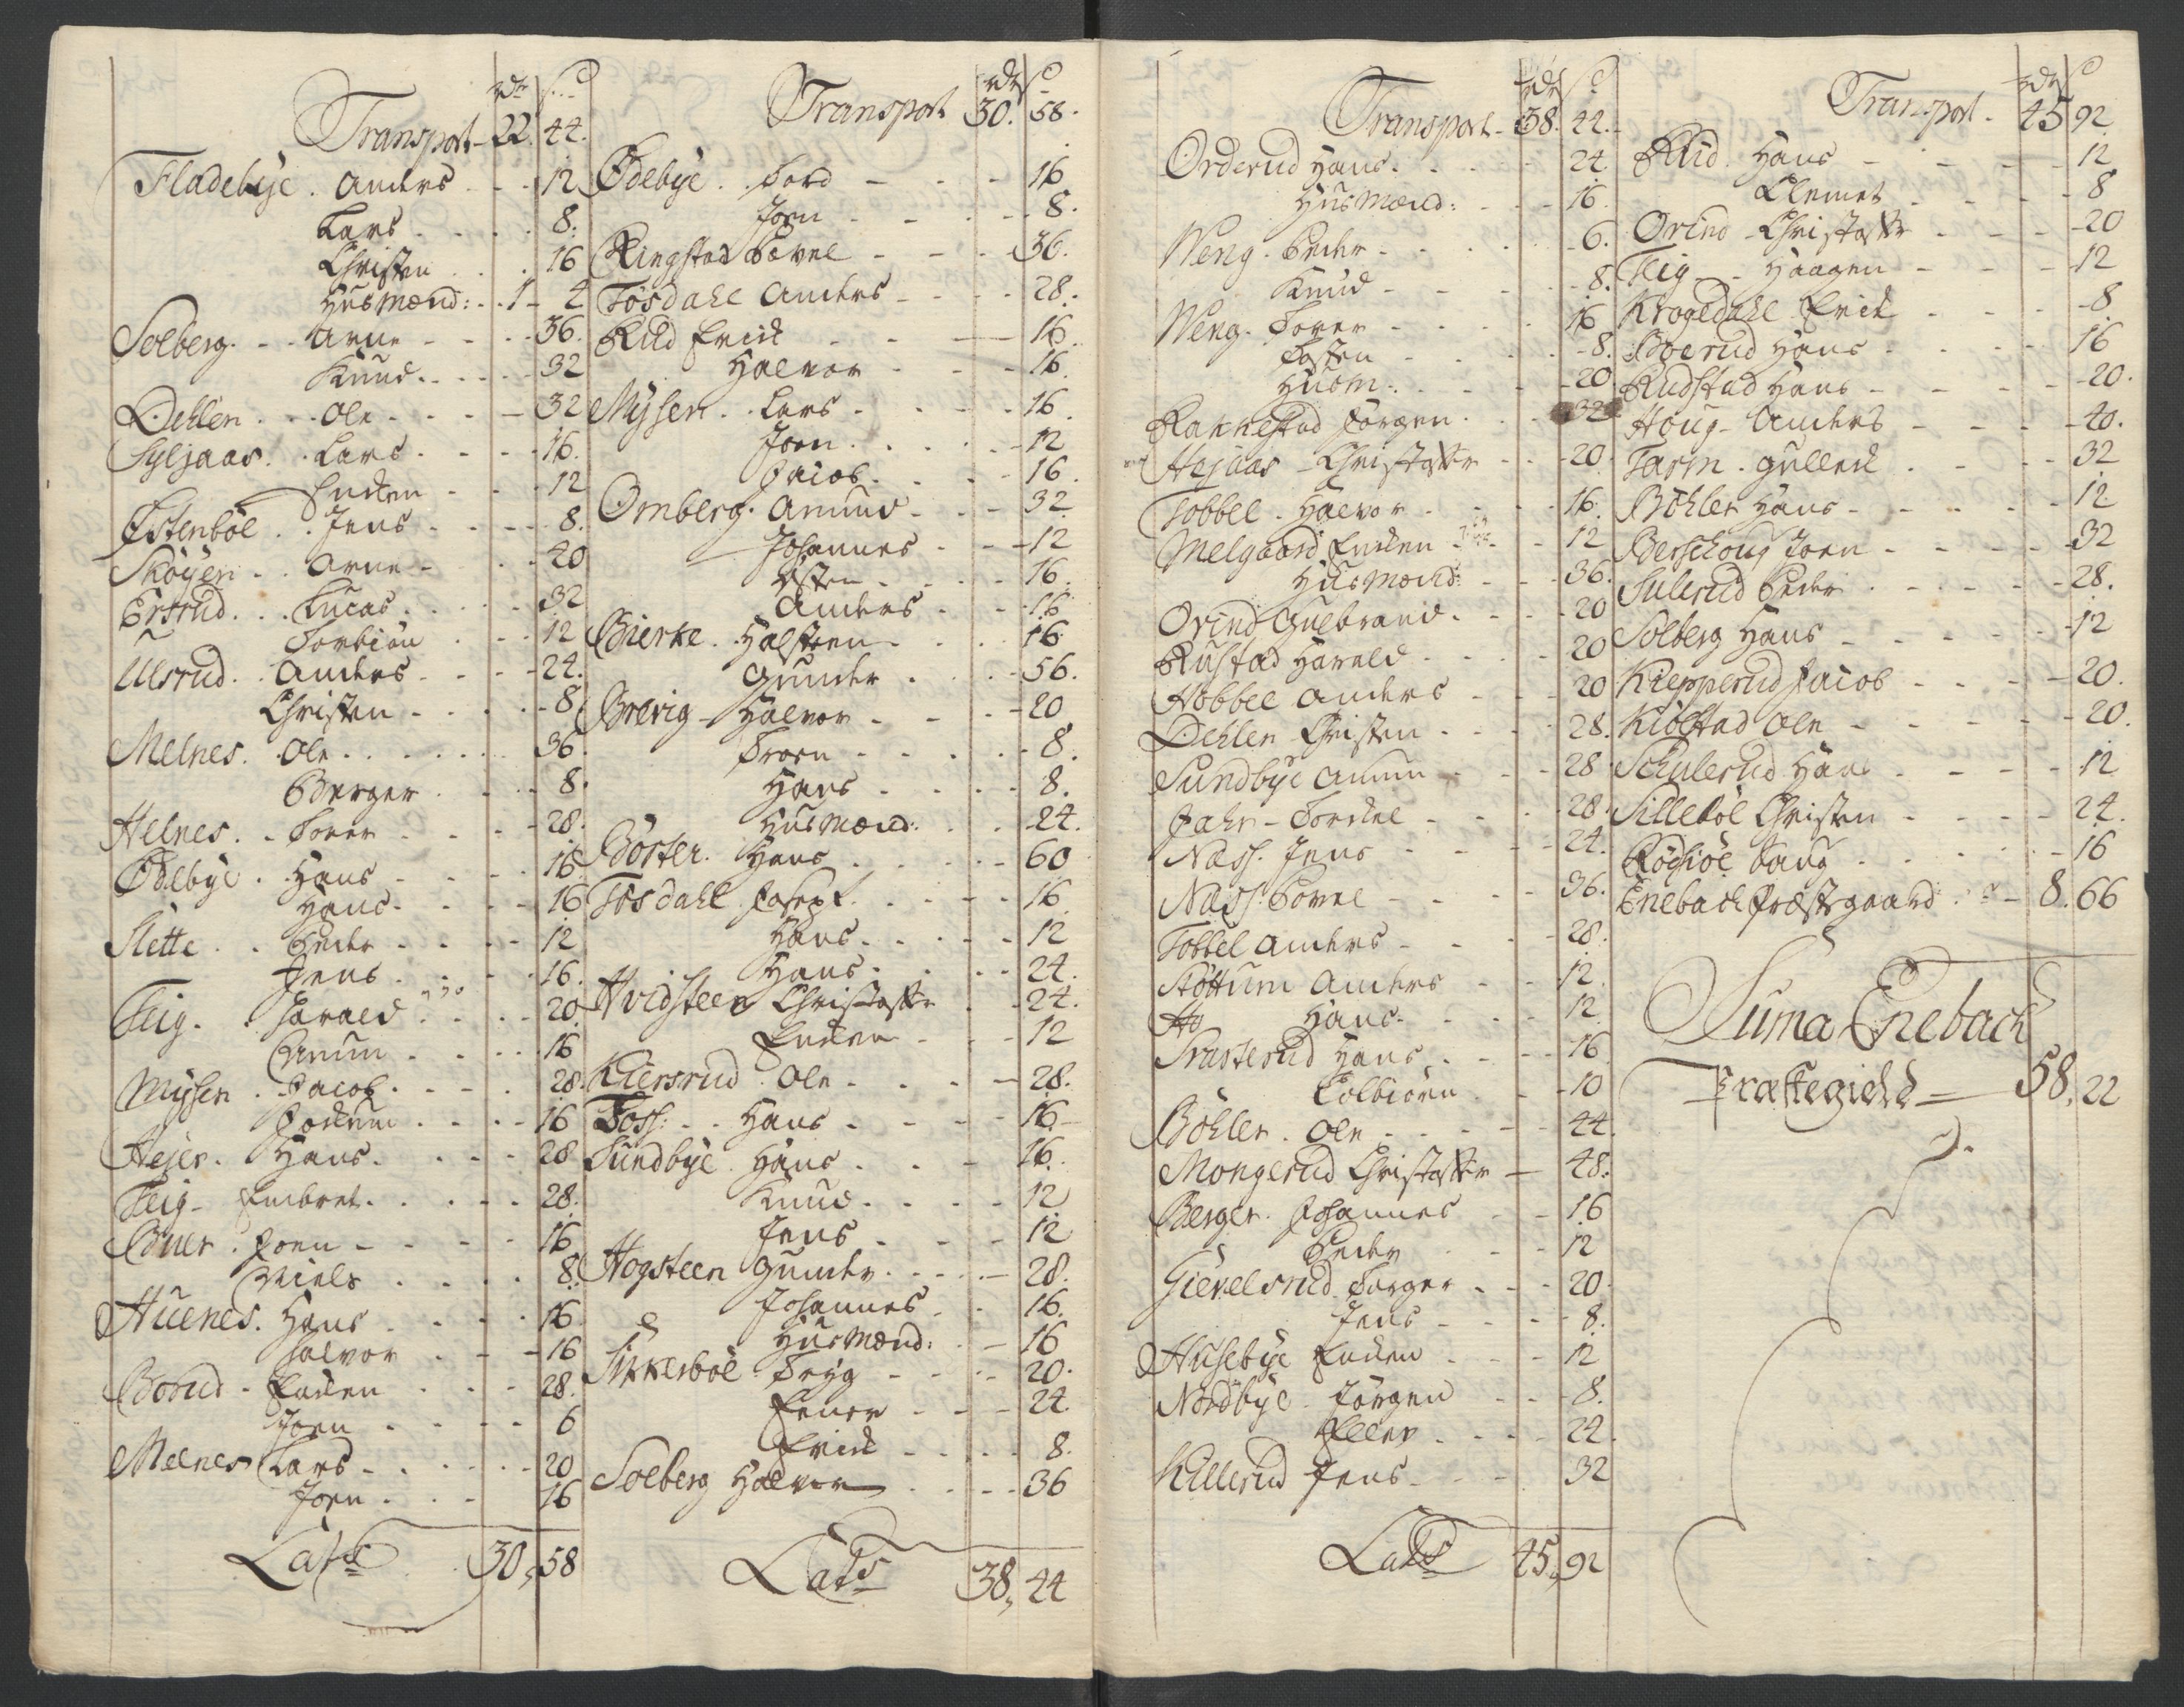 rdr s
Transport - 22. 44.
Fladebÿe. Anders - - 12
Lars - - 8.
Christen . . 16
Husmænd: - 1 - 4
Solberg. - - Arne - - 36.
Knud. - - 32
Dehlen. . . Ole - - - 32
Syljaas. . Lars. - - 16.
Enken - - 12
Østenböl . . Jens - - - 8.
Skøyen. . Arne - - 40
Ertsrud. . . Lucas. . - 32
Torbiön . . 12
Ulsrud. . Anders. - - 24.
Christen - - - 8.
Melnes. Ole. . . . . 36.
Berger . . . 8.
Helnes. . Torer - - - 28.
Ödebÿe. . Hans - - - 16.
Hans. - - - 16
Slette . . Peder - - - - 12
Jens. . . - 16.
Teig. . Harald . . . 20
Gunum . . . 16
Mÿsen . Jacob. - - . 28.
Jockum . . . 16
Hejer. Hans. . - - 28
Teig - Embret. . . . . 28.
Buer . Joen - - - - 16
Niels . . . . 8.
Huenes. Hans . - - . 16
Halvor . - - 16
Borud - Enken . . - 28.
Joen . - - - 6
Melnes Lars - . . . - 20
Joen . . . 16
Lats 30, 58

rdr s
Transport 30. 58.
Ödebÿe. . Tord - - - 16
Joen - - - - 8.
Ringstad Povel - - - 36.
Tösdahl Anders - - - 28.
Rud Erick - - - 16.
Halvor - - - 16.
Mÿsen. . Lars. . . - 16.
Joen. . . . - 12
Jacob. . . . 16
Omberg. Amund - - - 32
Johannes - - - 12
Østen. - - - 16.
Anders - - - 16
Bierke. . Halsteen - . . 16.
Gunder . . . - 56.
Brevig - Halvor - - - 20
Troen - - - - 8.
Hans . . . 8.
Husmænd: . . 24.
Börter. Hans . . . . - 60
Tösdahl Josep . - - - 16
Hans. . . - - 12
Hans. . . - 24.
Hvidsteen Christoffer . - 24.
Enken - - - 12
Kiersrud. Ole. . . - 28.
Foss. . . Hans . - - - 16
Sundbÿe. Hans . . . 16.
Knud. . - - - 12
Jens - - - 12
Hogsteen Gunder. . - - 28.
Johannes. - . 16.
Husmænd: . - 16
Sikkerböl Tryg - - - 20.
Ener - - - 24.
Erick . - - - 8.
Solberg Halvor . . - - 36
Lats 38, 44

rdr s
Transport - 38. 44.
Orderud Hans. . . . - 24.
Husmænd: - - 16.
Weng. Peder - - . . - 6.
Knud - - - - 8.
Weng. Torer - - - - 16
Tosten - - . . - 8.
Husm: . . - 20
Rakkestad Jörgen. . . 32
Hejaas - Christoffer - - 20
Tobbel - Halvor - - - 16.
Melgaard Enken - - - 12
Husmænd: - - 36.
Orind Gulbrand. - - - 20
Rustad Harald . - - - 20
Hobbel Anders - - - 20
Dehlen Christen . - . 28.
Sundbÿe Amun - - - 28
Jahr - Torckel - - - 28.
Næss. Jens - - - 24.
Næss. Povel - - - 36.
Tobbel Anders - - - 28.
Støttum Anders - - 12.
Hans. - - 12.
Prasterud Hans . - - 16
Colbiörn . - - 10
Böhler. Ole - - - - 44.
Mongerud Christoffer - 48.
Berger. Johannes - - 16
Peder - - - 12
Gievelsrud Torger - - - 20.
Jens - - - 8.
Husebÿe Enken . - - 12
Nordbÿe - Jörgen - - 8.
Eller - - - 24.
Killerud Jens - - - 32
Lats 45, 92

rdr s
Transport - 45 92
Rud. Hans - - - - 12
Clemet - - - - 8
Orind - Christoffer - - - 20
Teig - - Haagen - - - - 12
Krogedahl Erick - - - - 8.
Boerud Hans - - - 16
Rudstad Hans - - - - 20.
Houg - Anders - - - - 40.
Tarm . Gullick . - - - 32
Böhler Hans - - - - - 12
Berschoug Joen - - - - 32
Sulerud Peder . - - - 28.
Solberg Hans - - - - 12
Kiepperud Jacob - - - - 20.
Kiölstad Ole - - - - 20.
Schulerud Hans - - - - 12
Silleböl Christen - - - - 24.
Rödsiöe . . . . - 16
Enebach Præstegaard - - 8. 66
Suma Enebach
Præstegield - 58, 22